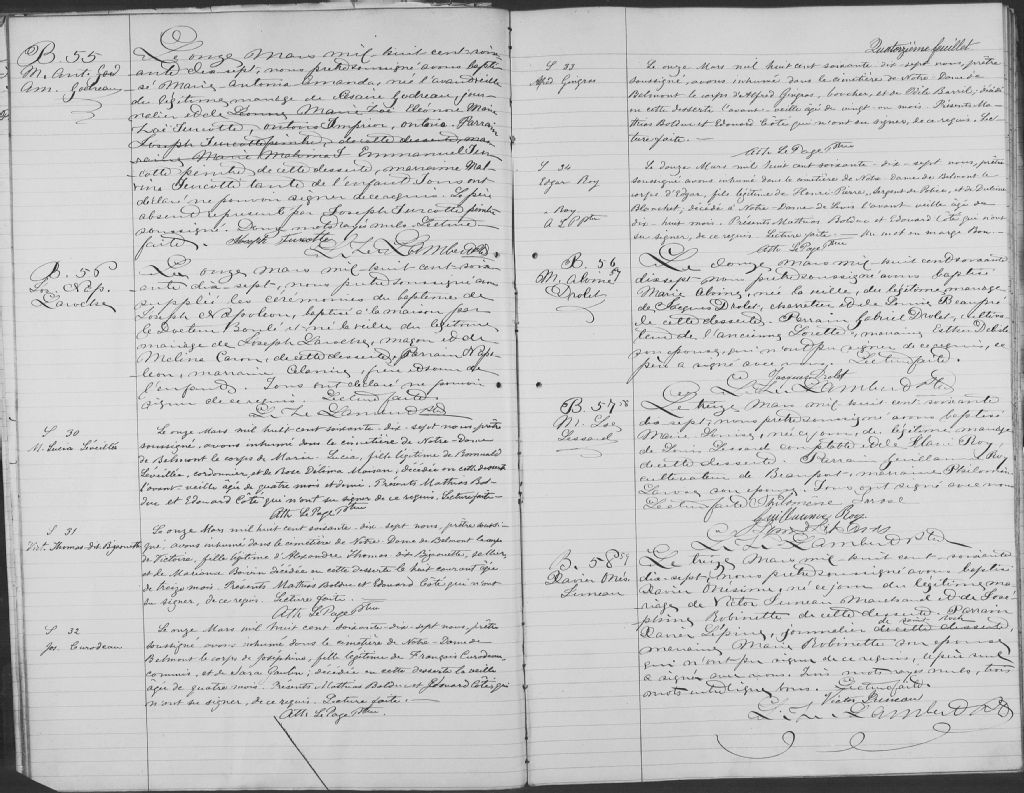 B. 55
M. Ant.
Am. Godreau
Le onze Mars mil huit cent soix-
ante dix sept, nous prêtre soussigné avons bapti-
sé Marie Antonia Amanda, né l'avant veille
du légitime mariage de Godreau jour-
nalier et de Marie
Turcotte, Ontario. Parrain
Joseph Turcotte peintre, de cette desserte, mar-
raine Marie Emmanuel Tur-
cotte peintre de cette desserte, marraine Mal-
vina Turcotte tante de l'enfant. Tous ont
déclaré ne pouvoir signer de ce requis. Le père
absent représenté par Joseph Turcotte peintre
soussigné. mots rayés nuls. Lecture
faite. Joseph Turcotte
B. 56
Jos. Nap.
Laroche
Le onze Mars mil huit cent soix-
ante dix sept, nous prêtre soussigné avons
supplié les cérémonies du baptême de
Joseph Napoléon, baptisé à la maison par
le Docteur et né la veille du légitime
mariage de Joseph Laroche, maçon et de
Melina Caron, de cette desserte, Parrain Napo-
léon, marraine frère et soeur de
l'enfant. Tous ont déclaré ne pouvoir
signer de ce requis. Lecture faite
S 30
M. Lucia Léveillée
Le onze Mars mil huit cent soixante-dix-sept nous, prêtre
soussigné, avons inhumé dans le cimetière de Notre-Dame
de Belmont le corps de Marie-Lucia, fille légitime de Romuald
Léveillée, cordonnier, et de Rose Delima décédée en cette desserte
l'avant-veille âgée de quatre mois et demi. Présents Matthias Bol-
duc et Edouard Côté qui n'ont su signer de ce requis. Lecture faite.
Ath. LePage Ptre
S 31
Vict. Thomas dit Bigaouette
Le onze Mars mil huit cent soixante-dix-sept nous, prêtre soussi-
gné, avons inhumé dans le cimetière de Notre-Dame de Belmont le corps
de Victoire, fille légitime d'Alexandre Thomas dit Bigaouette, sellier,
et de Marianne Boivin décédée en cette desserte le huit courant âgée
de treize mois. Présents Mathias Bolduc et Edouard Côté qui n'ont
su signer, de ce requis. Lecture faite.
Ath. LePage Ptre
S 32
Jos. Curodeau
Le onze Mars mil huit cent soixante-dix-sept nous, prêtre
soussigné avons inhumé dans le cimetière de Notre-Dame de
Belmont le corps de Joséphine, fille légitime de François Curodeau
commis, et de Sara décédée en cette desserte la veille
âgée de quatre mois. Présents Matthias Bolduc et Edouard Côté, qui
n'ont su signer, de ce requis. Lecture faite.
Ath. LePage Ptre
Quatorzième feuillet
S 33
Alfd. Gingras
Le onze Mars mil huit cent soixante-dix-sept nous, prêtre
soussigné, avons inhumé dans le cimetière de Notre-Dame de
Belmont le corps d'Alfred Gingras, boucher, et de décédé
en cette desserte l'avant-veille âgé de vingt-un mois. Présents Ma-
thias Bolduc et Edouard Côté qui n'ont su signer, de ce requis. Lec-
ture faite.
Ath. LePage Ptre
S 34
Edgar Roy
Roy
A L P Ptre
Le douze Mars mil huit cent soixante-dix-sept nous, prêtre
soussigné avons inhumé dans le cimetière de Notre-Dame de Belmont le
corps d'Edgar, fils légitime de Henri-Pierre, Sergent de Police, et de
Blanchet; décédé à Notre-Dame de Lévis l'avant veille âgé de
dix-huit mois. Présents Mathias Bolduc et Edouard Côté qui n'ont
su signer, de ce requis. Lecture faite. Un mot en marge Bon.
Ath. LePage Ptre
B. 56 57
M. Alvine
Drolet
Le douze Mars mil huit cent soixante
dix sept nous prêtre soussigné avons baptisé
Marie Alvine, née la veille, du légitime mariage
de Jacques Drolet, charretier et de Louise Beaupré
de cette desserte. Parrain Gabriel Drolet, cultiva-
teur de l'ancienne Lorette, marraine Esther Delisle
son épouse, qui n'ont pu signer de ce requis, le
père a signé avec nous. Lecture faite.
Jacques Drolet
B. 57 58
M. Lse
Lessard
Le treize Mars mil huit cent soixante
dix sept, nous prêtre soussigné avons baptisé
Marie Louise, née ce jour, du légitime mariage
de Louis Lessard et de Roy,
de cette desserte. Parrain Guillaume Roy
cultivateur de Beauport, marraine Philomène
son épouse. Tous ont signé avec nous
Lecture faite. Philomène
Guillaume Roy
B. 58 59
Xavier Onés.
Juneau
Le treize Mars mil huit cent soixante
dix sept, nous prêtre soussigné avons baptisé
Xavier Onésime, né ce jour du légitime ma-
riage de Victor Juneau Marchand et de José-
phine Robinette de cette desserte. Parrain
de Saint Roch
Xavier Lépine, journalier de cette desserte,
marraine Marie Robinette son épouse
qui n'ont pu signer de ce requis, le père seul
a signé avec nous. Trois mots nuls, trois
mots interlignés bons. Lecture faite.
Victor Juneau